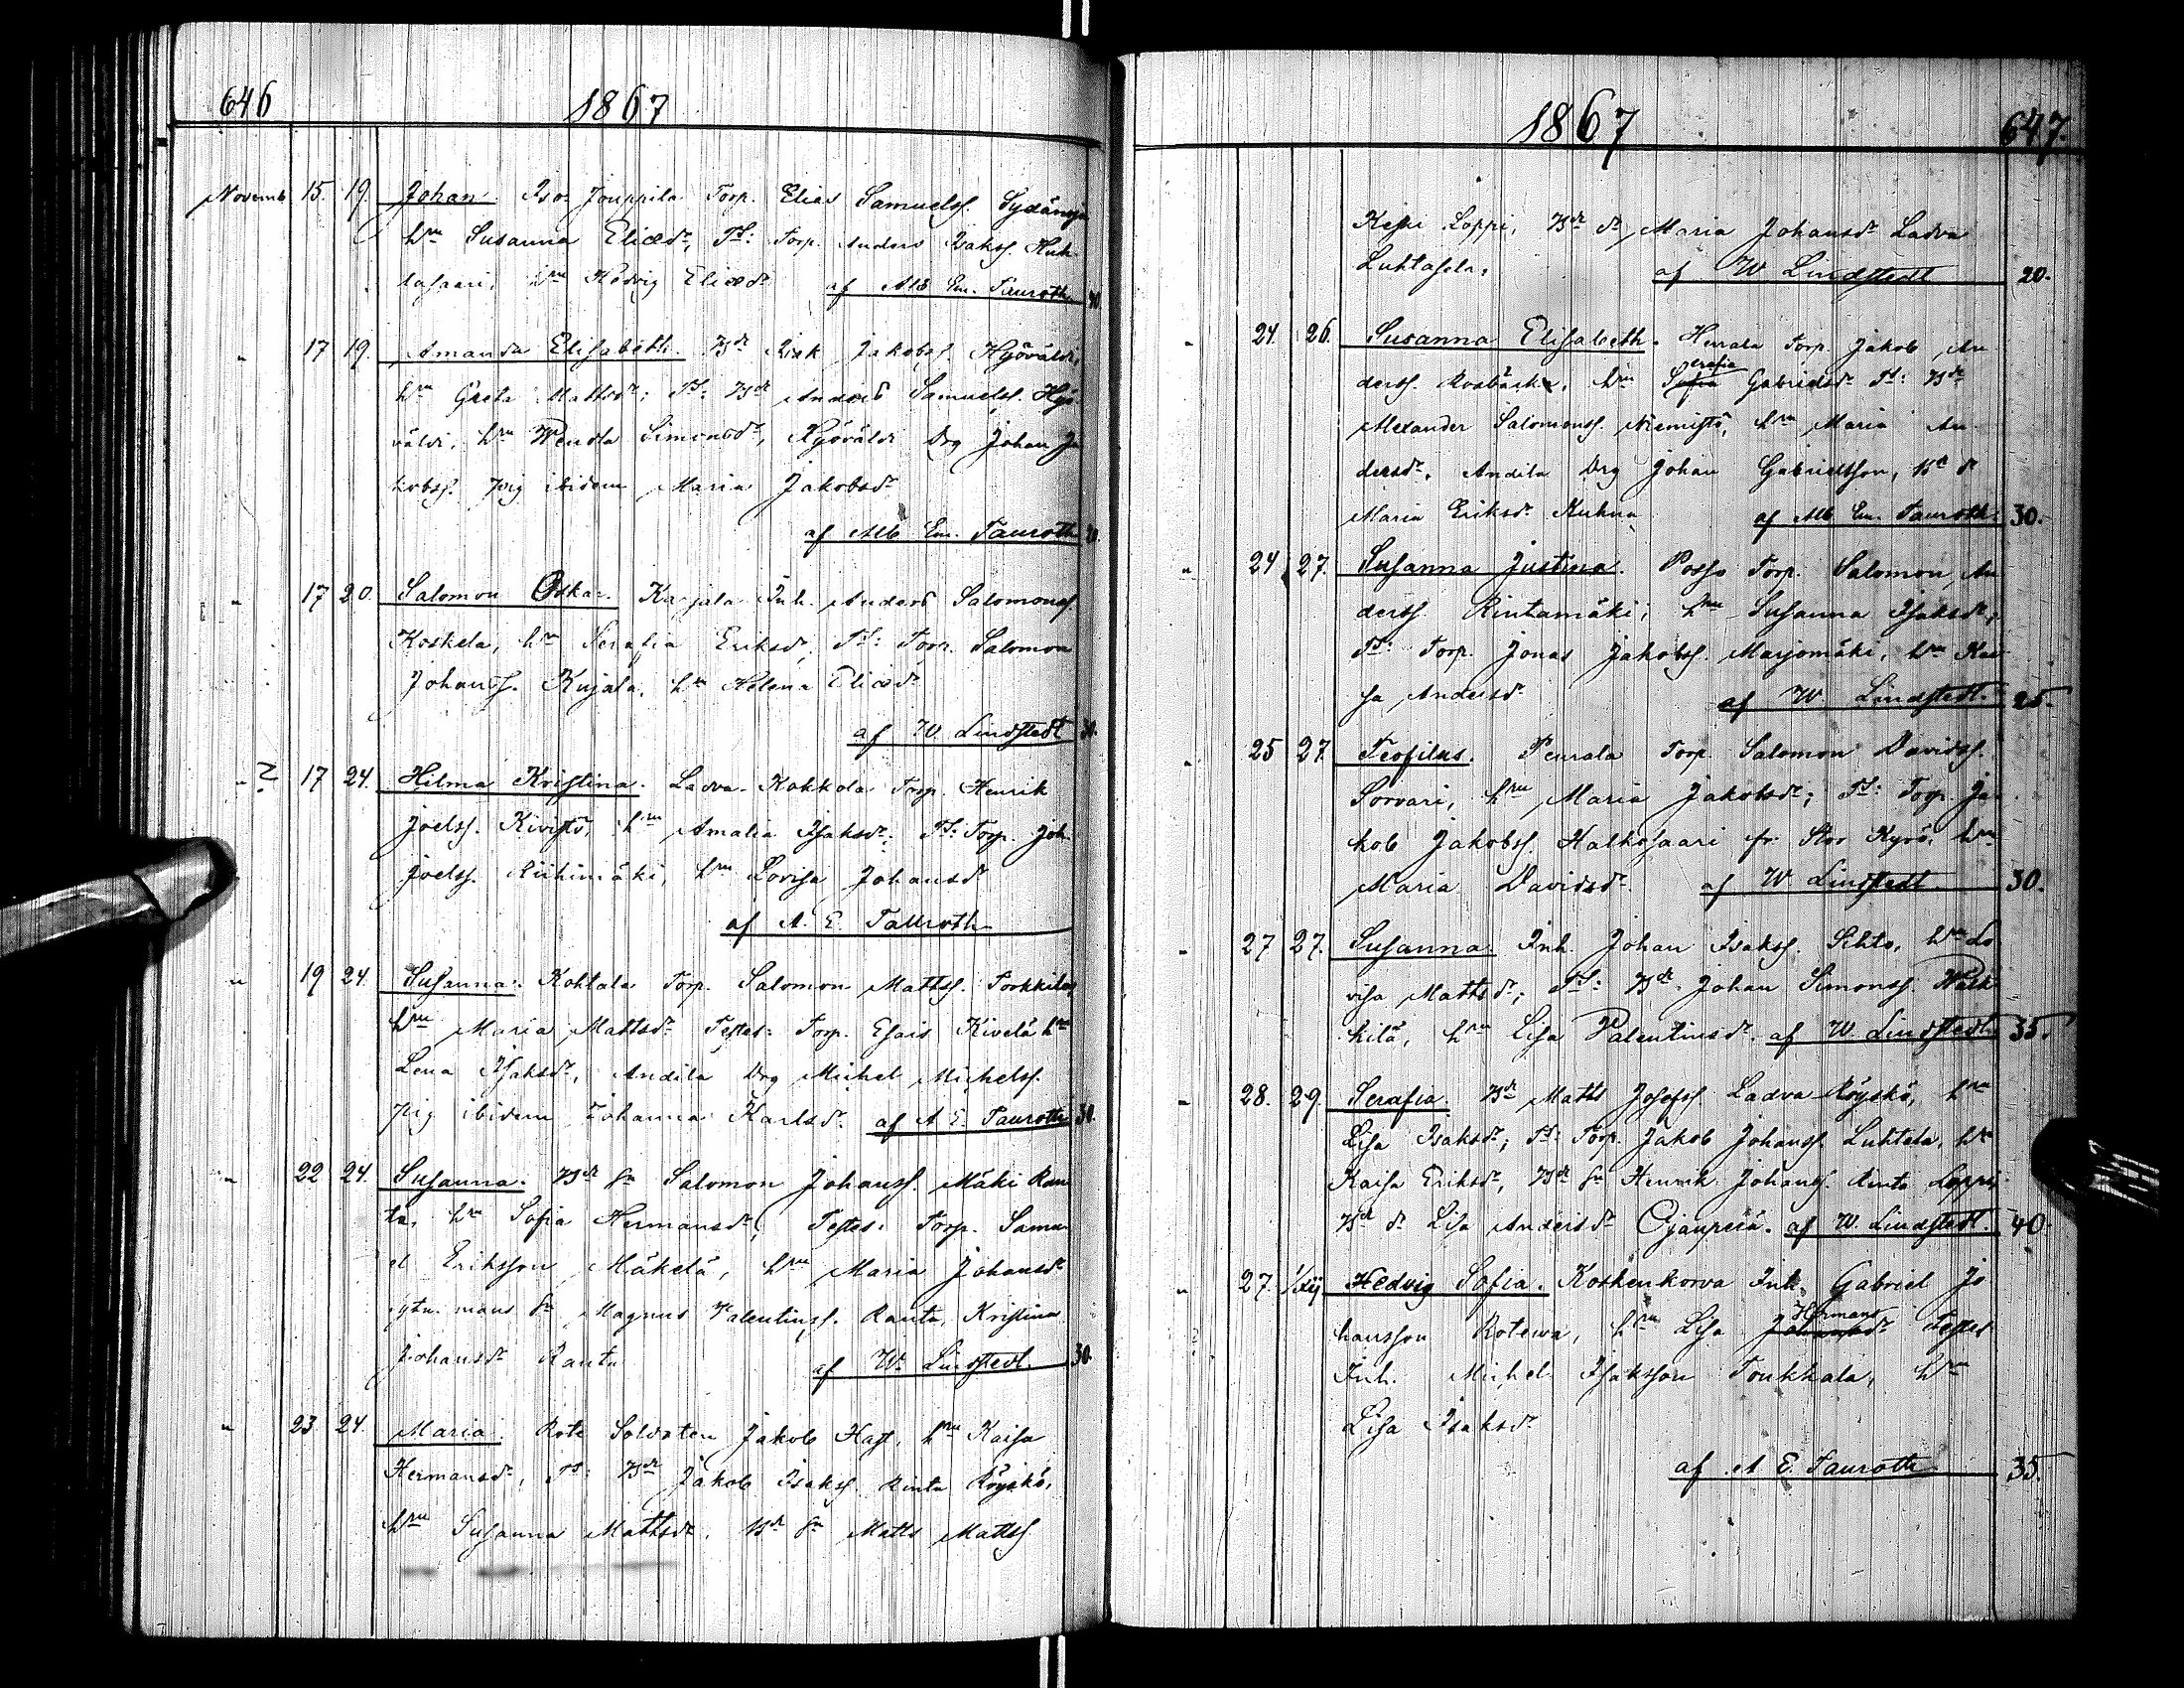 646 1867
Novemb. 15. 19. Johan. Iso Jouppila Torp. Elias Samuelss. Sydänoja
hru Susanna Eliædr, Tt: Torp. Anders Isakss. Huh-
tasaari, hru Hedvig Eliædr af Alb Em. Tauroth
" 17 19. Amanda Elisabeth. Bdr Isak Jakobss. Hyöväldi,
hru Greta Mattsdr; Tt: Bdr Anders Samuelss. Hyö-
väldi, hru Wendla Simonsdr, Hyöväldi Drg Johan Ja-
kobss. pig ibidem Maria Jakobsdr
af Alb Em. Tauroth
" 17 20. Salomon Oskar. Kujala Inh. Anders Salomonss.
Koskela, hru Serafia Eriksdr, Tt: Torp. Salomon
Johanss. Kujala, hru Helena Eliædr
af W. Lindstedt 30.
" ? 17 24. Hilma Kristina. Ladva-Kokkola Torp. Henrik
Joelss. Kivistö, hru Amalia Isaksdr. Tt: Torp. Joh.
Joelss. Riihimäki, hru Lovisa Johansdr
af A. E. Tauroth
" 19 24. Susanna. Kohtala Torp. Salomon Mattss. Torkkila,
hru Maria Mattsdr Testes: Torp. Esais Kivelä hru
Lena Isaksdr, Andila Drg Michel Michelss.
pig ibidem Johanna Karlsdr. af A E. Tauroth 30.
" 22 24. Susanna. Bdr sn Salomon Johanss. Mäki Ran-
ta, hru Sofia Hermansdr, Testes: Torp. Samu-
el Eriksson Mäkelä, hru Maria Johansdr
sytn. mans sn Magnus Valentinss. Ranta, Kristina
Johansdr Ranta af W. Lindstedt. 30.
" 23 24. Maria. Rote Soldaten Jakob Hast, hru Kaisa
Hermansdr, Tt: Bdr Jakob Isakss. Rinta Röyskö,
hru Susanna Mattsdr. Bdr sn Matts Mattss
1867 647.
Keski Loppi, Bdr dr Maria Johansdr Ladva
Luhtasela. af W Lindstedt 20.
" 24. 26. Susanna Elisabeth. Herrala Torp. Jakob An-
derss. Rosbäcka, hru Sofia erafia Gabrielsdr Tt: Bdr
Alexander Salomonss. Niemistö, hru Maria An-
dersdr. Andila Drg Johan Gabrielsson, Bd dr
Maria Eriksdr Kuhna af Alb Em. Tauroth. 30.
" 24 27. Susanna Justina. Posso Torp. Salomon An-
derss Rintamäki; hru Susanna Isaksdr,
Tt: Torp. Jonas Jakobss. Marjomäki, hru Kai-
sa Andersdr af W. Lindstedt. 25.
" 25 27. Teofilus. Peurala Torp. Salomon Davidss.
Sorvari, hru Maria Jakobsdr; Tt: Torp. Ja-
kob Jakobss. Halkosaari fr. Stor Kyrö, hru
Maria Davidsdr. af W Lindstedt. 30.
" 27 27. Susanna. Inh. Johan Isakss. Sihto, hru Lo-
visa Mattsdr; Tt: Bdr Johan Simonss Wärk-
kilä, hru Lisa Valentinsdr. af W. Lindstedt 35.
" 28. 29. Serafia. Bdr Matts Josefss Ladva Röyskö, hru
Lisa Isaksdr; Tt: Torp. Jakob Johanss. Luhtala, hru
Kaisa Eriksdr, Bdr sn Henrik Johanss. Rinta Loppi,
Bdr dr Lisa Andersdr Ojanperä. af W. Lindstedt. 40.
" 27. 1/xij Hedvig Sofia. Koskenkorva Inh. Gabriel Jo-
hansson Rotewa, hru Lisa Johansdr Hermans Testes
Inh. Michel Isaksson Toukkala, hru
Lisa Isaksdr
af A E. Tauroth 35.